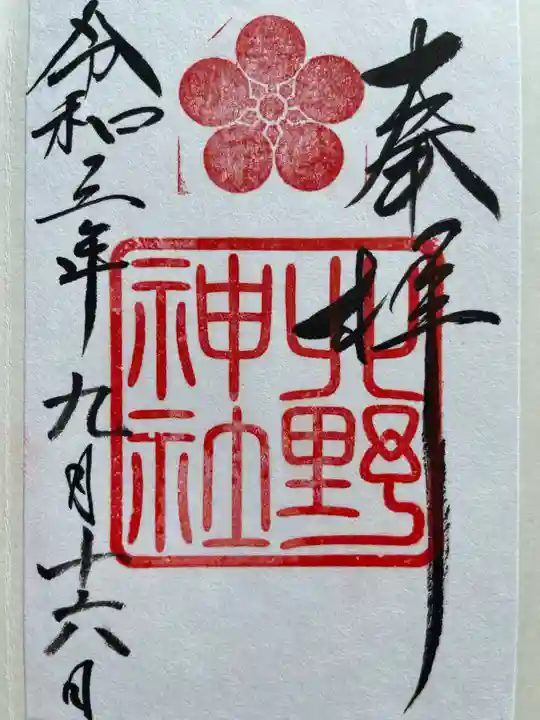 奉拝
北野
神社
令和三年九月十六日